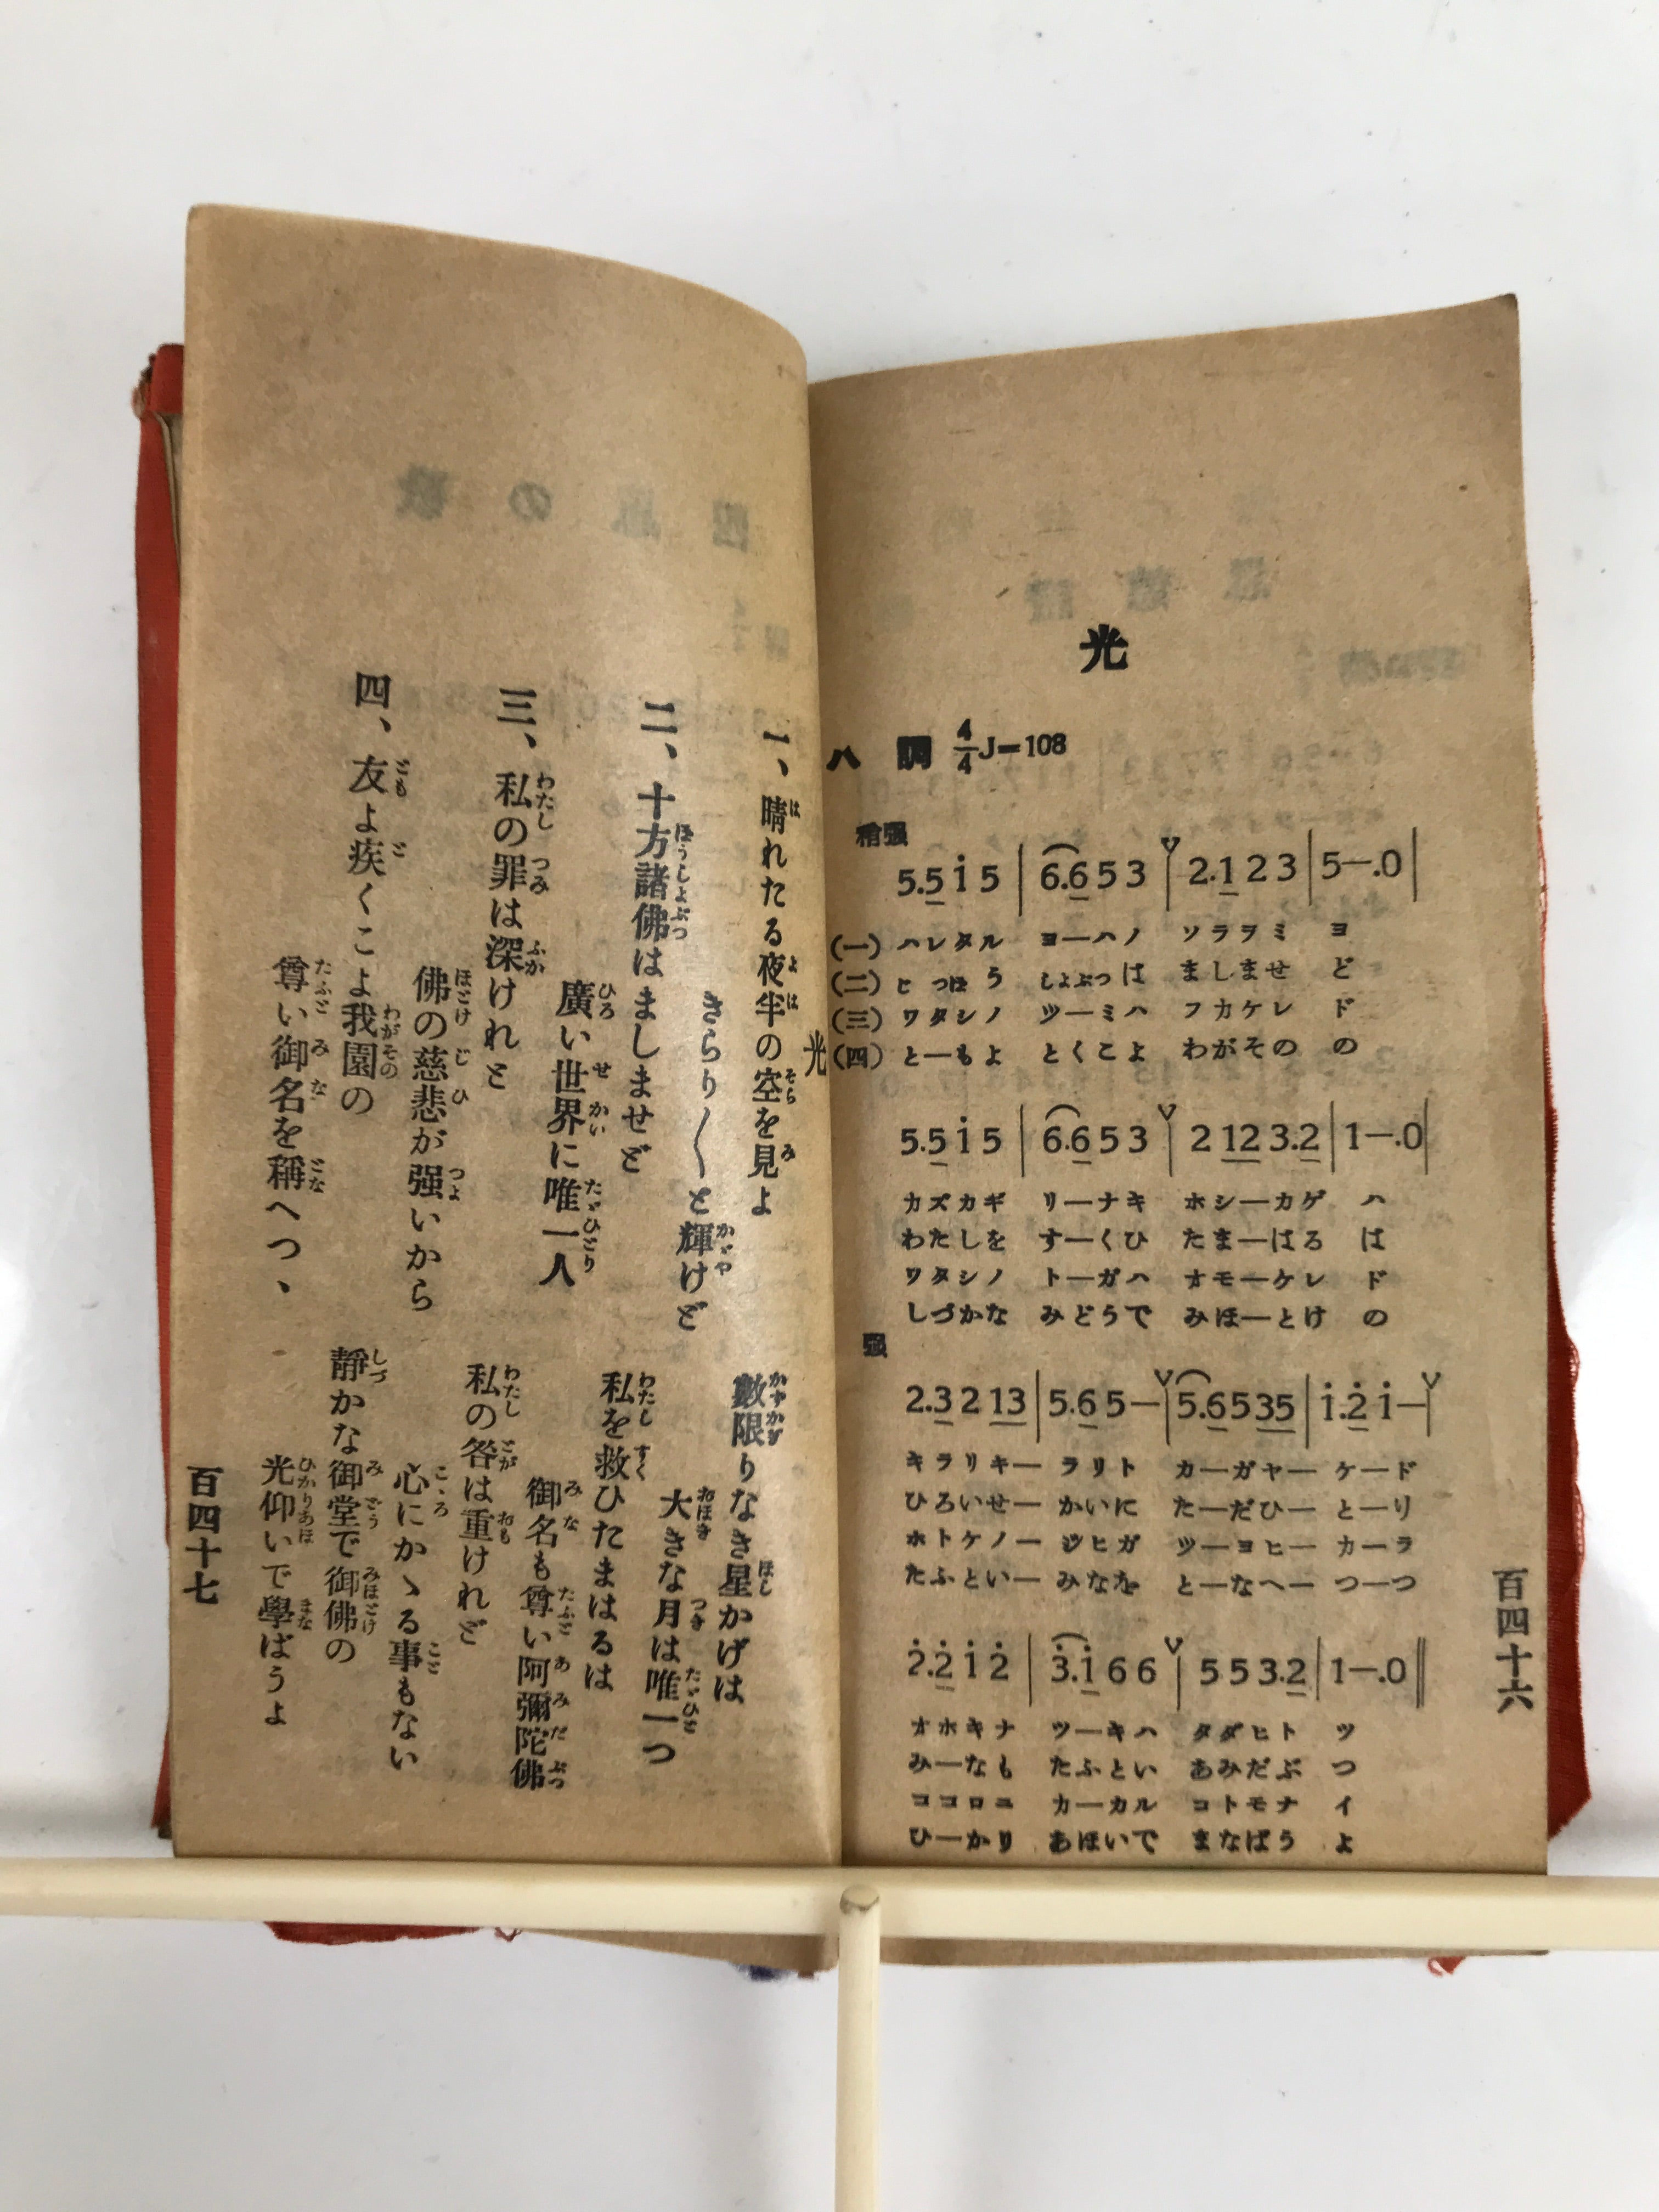 光
ハ調 4/4 ♩=108
稍强
5.5 i 5 | 6.6 5 3 | 2.1 2 3 | 5—.0 |
(一) ハレタル ヨ—ハノ ソラヲミ ヨ
(二) しょぶつは ましませ ど
(三) ワタシノ ツ—ミハ フカケレ ド
(四) と—もよ とくこよ わがその の
5.5 i 5 | 6.6 5 3 | 2 12 3.2 | 1—.0 |
カズカギ リ—ナキ ホシ—カゲ ハ
わたしを す—くひ たま—はる は
ワタシノ ト—ガハ オモ—ケレ ド
しづかな みどうで みほ—とけ の
强
2.3 2 13 | 5.6 5— | 5.6 5 35 | i.2̇ i— |
キラリキ— ラリト カ—ガヤ— ケ—ド
ひろいせ— かいに た—だひ— と—り
ホトケノ— ジヒガ ツ—ヨヒ— カ—ラ
たふとい— みなを と—なへ— つ—つ
2̇.2̇ i 2̇ | 3̇.i 6 6 | 5 5 3.2 | 1—.0 ‖
オホキナ ツ—キハ タダヒト ツ
み—なも たふとい あみだぶ つ
ココロニ カ—カル コトモナ イ
ひ—かり あほいで まなばう よ
百四十六
光
一、晴れたる夜半の空を見よ
數限りなき星かげは
きらり〱と輝けど
大きな月は唯一つ
二、十方諸佛はましませど
私を救ひたまはるは
廣い世界に唯一人
御名も尊い阿彌陀佛
三、私の罪は深けれど
私の咎は重けれど
佛の慈悲が强いから
心にかゝる事もない
四、友よ疾くこよ我園の
靜かな御堂で御佛の
尊い御名を稱へつゝ
光仰いで學ばうよ
百四十七